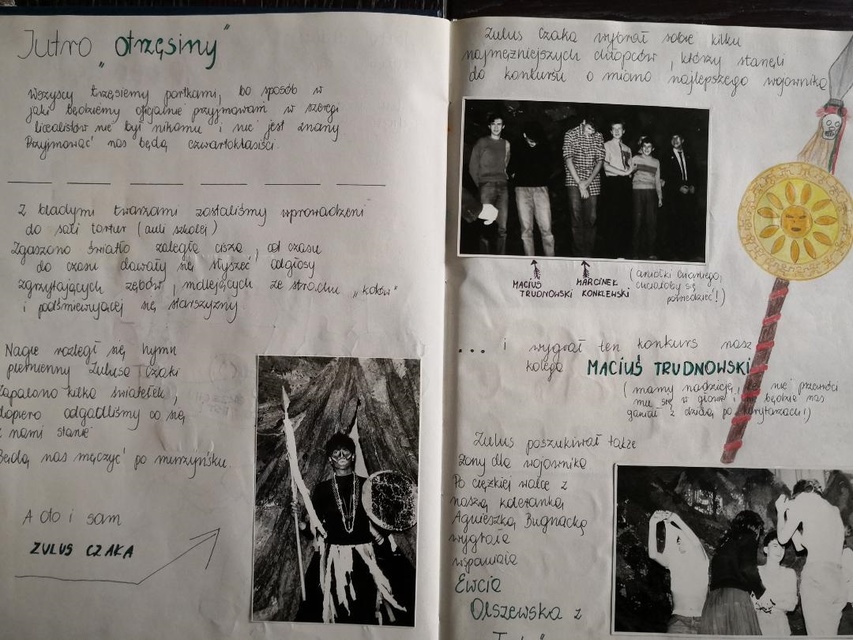 Jutro „otrzęsiny"
Wszyscy trzęsiemy portkami, bo sposób w
jaki będziemy oficjalnie przyjmowani w szeregi
licealistów nie był nikomu i nie jest znany
Przyjmować nas będą czwartoklasiści.
Z bladymi twarzami zostaliśmy wprowadzeni
do sali tortur (auli szkolej)
Zgaszono światło zaległa cisza, od czasu
do czasu dawały się słyszeć odgłosy
zgrzytających zębów, mdlejących ze strachu „kotów"
i podśmiewującej się starszyzny
Nagle rozległ się hymn
plemienny Zulusa Czaki
Zapalono kilka światełek,
dopiero odgadliśmy co się
z nami stanie
Będą nas męczyć po murzyńsku.
A oto i sam
ZULUS CZAKA
Zulus Czaka wybrał sobie kilku
najmężniejszych chłopców, którzy stanęli
do konkursu o miano najlepszego wojownika
MACIUŚ
TRUDNOWSKI
MARCINEK
KONKLEWSKI
(aniołki
chciałoby się
powiedzieć!)
... i wygrał ten konkurs nasz
kolega MACIUŚ TRUDNOWSKI
(mamy nadzieję, że nie przewróci
mu się w głowie i nie będzie nas
ganiał z dzidą po korytarzach!)
Zulus poszukiwał także
żony dla wojownika
Po ciężkiej walce z
naszą koleżanką
Agnieszką Bugnacką
wygrała
wspaniała
Ewcia
Olszewska z